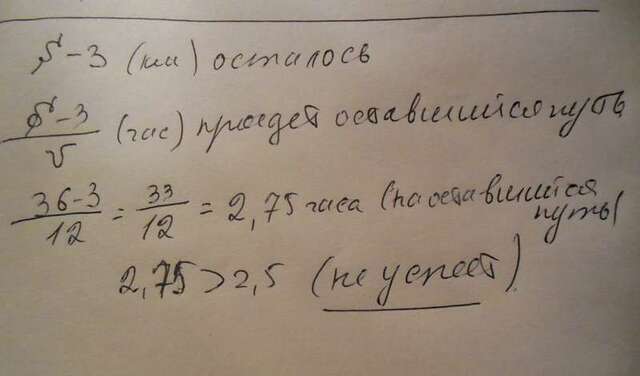 S - 3 (км) осталось
S - 3 / v (час) пройдет оставшийся путь
36 - 3 / 12 = 33 / 12 = 2,75 часа (на оставшийся
путь)
2,75 > 2,5 (не успеет)